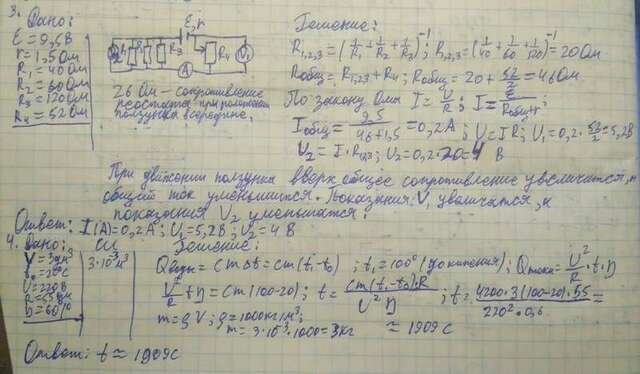 3. Дано:
E = 9,5 В
r = 1,5 Ом
R1 = 40 Ом
R2 = 60 Ом
R3 = 120 Ом
R4 = 52 Ом
E, r
R3
R4
V1
A
26 Ом - сопротивление
реостата при положении
ползунка в середине.
Решение:
R1,2,3 = (1/R1 + 1/R2 + 1/R3)^-1; R1,2,3 = (1/40 + 1/60 + 1/120)^-1 = 20 Ом
Rобщ = R1,2,3 + R4; Rобщ = 20 + 52/2 = 46 Ом
По закону Ома I = U/R; I = E/(Rобщ+r);
Iобщ = 9,5/(46+1,5) = 0,2 А; U = IR; U1 = 0,2 · 52/2 = 5,2 В
U2 = I · R1,2,3; U2 = 0,2 · 20 = 4 В
При движении ползунка вверх общее сопротивление увеличится, и
общий ток уменьшится. Показания V1 увеличатся, и
показания V2 уменьшатся.
Ответ: I(A) = 0,2 А; U1 = 5,2 В; U2 = 4 В
4. Дано:
V = 3 дм³
t0 = 20°C
U = 220 В
η = 60%
СИ
3·10^-3 м³
Решение:
Qводы = cmΔt = cm(t1-t0); t1 = 100° (до кипения); Qтока = U²/R · t · η
U²/R tη = cm(100-20); t = cm(t1-t0)·R / U²η; t = 4200·3(100-20)·55 / 220²·0,6 =
m = ρV; ρ = 1000 кг/м³;
m = 3·10^-3·1000 = 3 кг
≈ 1909 с
Ответ: t ≈ 1909 с